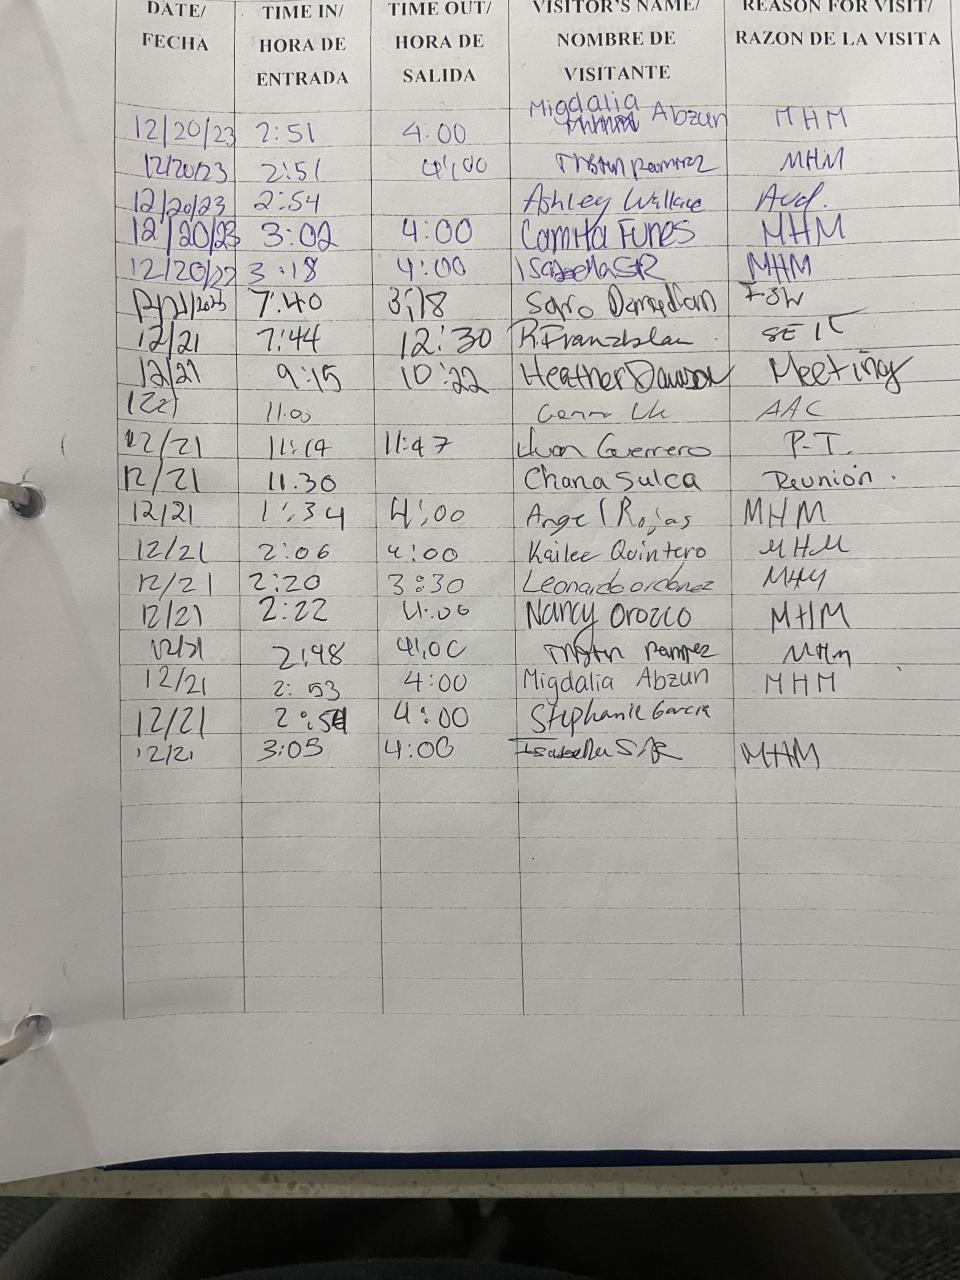 DATE/ TIME IN/ TIME OUT/ VISITOR'S NAME/ REASON FOR VISIT/
FECHA HORA DE HORA DE NOMBRE DE RAZON DE LA VISITA
ENTRADA SALIDA VISITANTE
12/20/23 2:51 4:00 Migdalia Abzun MHM
12/20/23 2:51 4:00 Ramirez MHM
12/20/23 2:54 Ashley Wallace Aud.
12/20/23 3:02 4:00 Camita Funes MHM
12/20/23 3:18 4:00 Isabella SR MHM
7:40 3:18
12/21 7:44 12:30 SEIT
12/21 9:15 10:22 Heather Dawson Meeting
11:00 AAC
12/21 11:19 11:47 Guerrero P.T.
12/21 11.30 Chana Sulca Reunión.
12/21 1:34 4:00 Angel Rojas MHM
12/21 2:06 4:00 Kailee Quintero MHM
12/21 2:20 3:30 Leonardo ordonez MHM
12/21 2:22 4:00 Nancy Orozco MHM
12/21 2:48 4:00 Ramirez MHM
12/21 2:53 4:00 Migdalia Abzun MHM
12/21 4:00 Stephanie Garcia
12/21 3:05 4:00 Isabella MHM